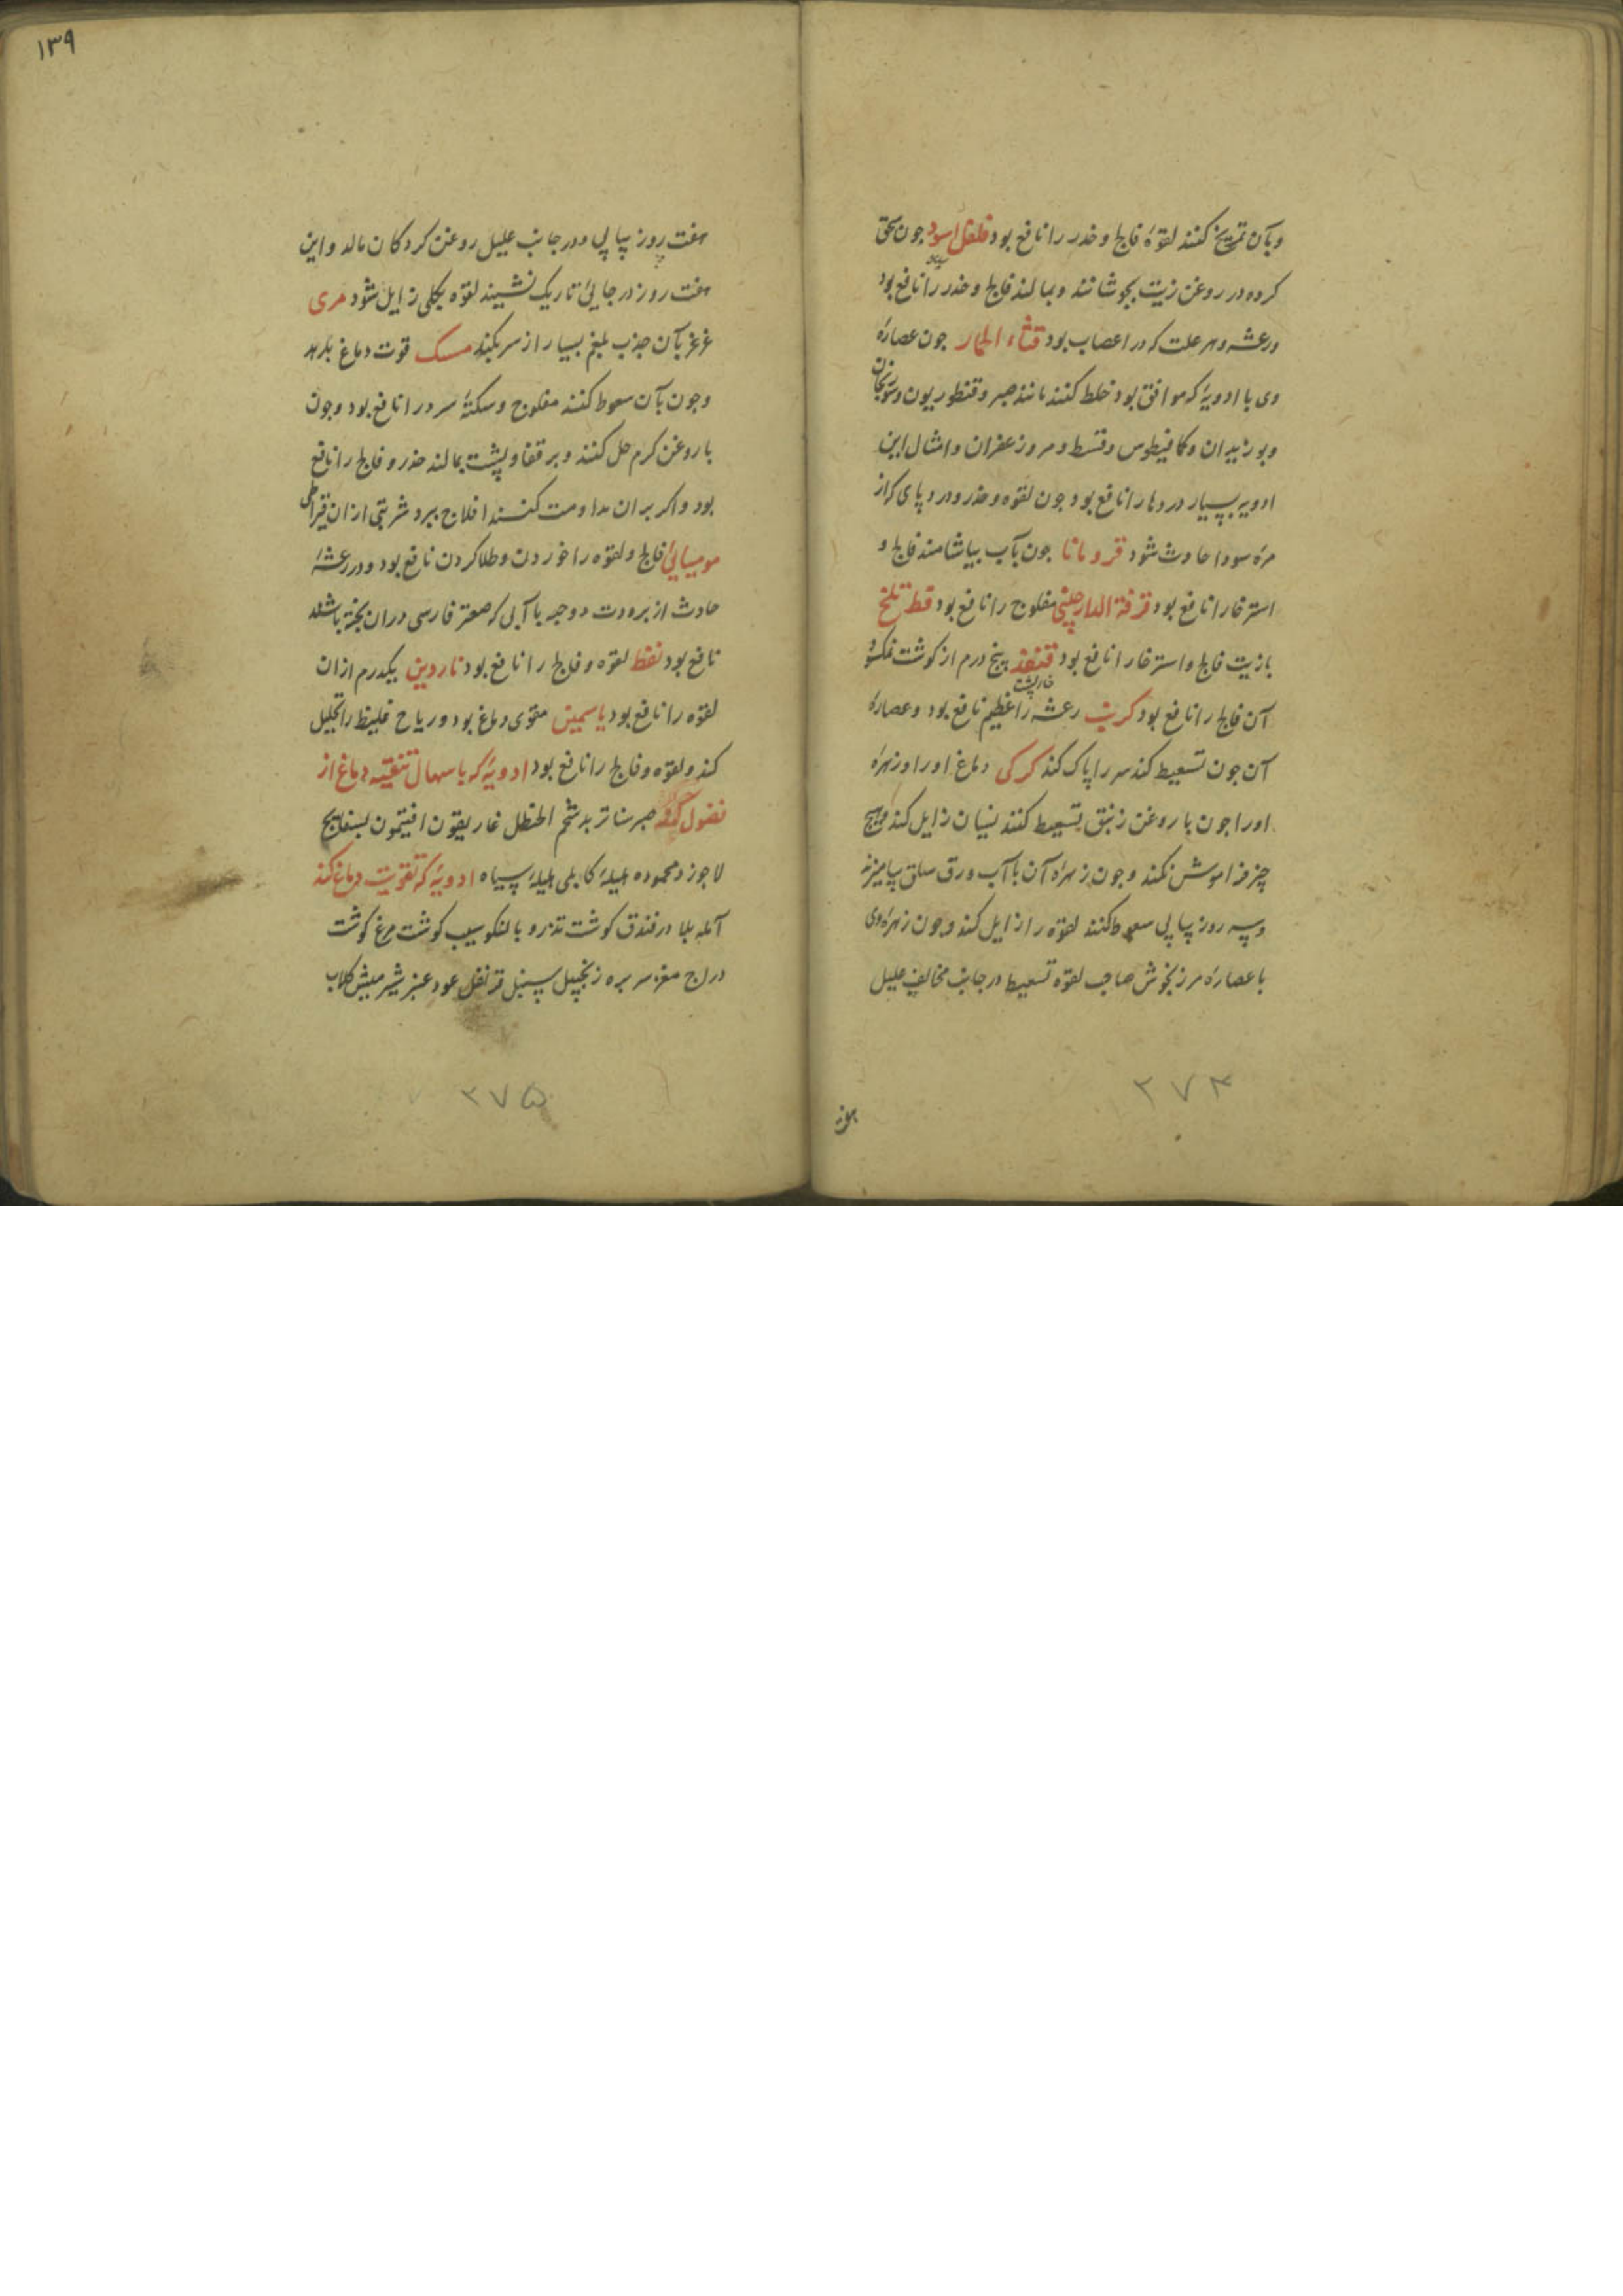 وبآن تمریخ کنند لقوهٔ فالج و خدر را نافع بود فلفل اسود جون سحق
سیاه
کرده در روغن زیت بجوشانند و بمالند فالج و خدر را نافع بود
ورعشه و هر علت که در اعصاب بود قثاء الحمار جون عصارهٔ
وی با ادویهٔ که موافق بود خلط کنند مانند صبر و قنطوریون و سورنجان
وبوزیدان و کمافیطوس و قسط و مر و زعفران و امثال این
ادویه بسیار دردها را نافع بود جون لقوه و خدر و درد پای که از
مرهٔ سودا حادث شود قردمانا جون بآب بیاشامند فالج و
استرخا را نافع بود قرفة الدارچینی مفلوج را نافع بود قسط تلخ
بازیت فالج و استرخا را نافع بود قنفذ پنج درم از کوشت نمکسود
خارپشت
آن فالج را نافع بود کرنب رعشه را عظیم نافع بود و عصارهٔ
آن جون تسعیط کنند سر را پاک کند کرکی دماغ او را و زهرهٔ
او را جون با روغن زنبق تسعیط کنند نسیان زایل کند و هیچ
چیز فراموش نکند و جون زهرهٔ آن با آب ورق سلق بیامیزند
وسه روز پیاپی سعوط کنند لقوه را زایل کند و جون زهرهٔ وی
با عصارهٔ مرزنجوش صاحب لقوه تسعیط در جانب مخالف علیل
۲۷۴
۱۳۹
هفت روز پیاپی و در جانب علیل روغن کردکان مالد و این
هفت روز در جایی تاریک نشیند لقوه بکلی زایل شود مری
غرغر بآن جذب بلغم بسیار از سر بکند مسک قوت دماغ بدهد
وجون بآن سعوط کنند مفلوج و سکتهٔ سرد را نافع بود وجون
با روغن کرم حل کنند و بر قفا و پشت بمالند خدر و فالج را نافع
بود و اکر بر ان مداومت کنند افلاج ببرد شربتی از ان قیراطی
مومیایی فالج و لقوه را خوردن و طلا کردن نافع بود و در رعشهٔ
حادث از برودت دو حبه با آبی که صعتر فارسی دران پخته باشند
نافع بود نفط لقوه و فالج را نافع بود ناردین یکدرم ازان
لقوه را نافع بود یاسمین مقوی دماغ بود و ریاح غلیظ را تحلیل
کند و لقوه و فالج را نافع بود ادویهٔ که باسهال تنقیهٔ دماغ از
فضول کند صبر سنا تربد شحم الحنظل غاریقون افتیمون بسفایج
لاجورد محموده هلیلهٔ کابلی هلیلهٔ سیاه ادویهٔ که تقویت دماغ کند
آمله بلادر فندق کوشت تذرو بالنکو سیب کوشت مرغ کوشت
دراج مغز سر بره زنجبیل سنبل قرنفل عود عنبر شیر میش کلاب
۲۷۵